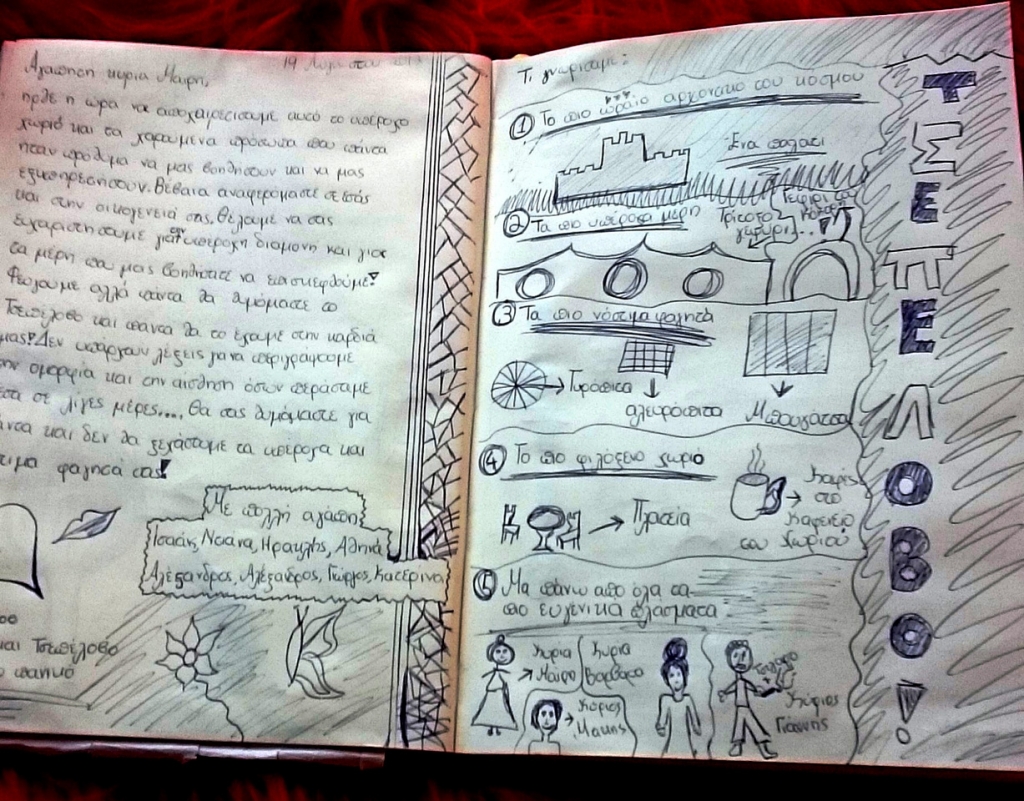 19 Αυγούστου
Αγαπητή κυρία Μαίρη,
ήρθε η ώρα να αποχαιρετίσουμε αυτό το υπέροχο
χωριό και τα χαρούμενα πρόσωπα που πάντα
ήταν πρόθυμα να μας βοηθήσουν και να μας
εξυπηρετήσουν. Βέβαια αναφερόμαστε σε εσάς
και στην οικογένειά σας. Θέλουμε να σας
ευχαριστήσουμε για την υπέροχη διαμονή και για
τα μέρη που μας βοηθήσατε να επισκεφθούμε!
Φεύγουμε αλλά πάντα θα θυμόμαστε το
Τσεπέλοβο και πάντα θα το έχουμε στην καρδιά
μας! Δεν υπάρχουν λέξεις για να περιγράψουμε
την ομορφιά και την αίσθηση όσων περάσαμε
σε λίγες μέρες..., θα σας θυμόμαστε για
πάντα και δεν θα ξεχάσουμε τα υπέροχα και
φαγητά σας!
Με πολλή αγάπη
Νοάνα, Ηρακλής, Αθηνά
Αλεξάνδρα, Αλέξανδρος, Γιώργος, Κατερίνα
και Τσεπέλοβο
Τι γνωρίσαμε:
① Το πιο ωραίο αρχοντικό του κόσμου
-Ένα παλάτι
② Τα πιο υπέροχα μέρη
Τρίτοξο
γεφύρι...
Γεφύρι του
Κόκκορη
③ Τα πιο νόστιμα φαγητά
Τυρόπιτα
αλευρόπιτα
Μπουγάτσα
④ Το πιο φιλόξενο χωριό
Πλατεία
Καφές
στο
καφενείο
του χωριού
⑤ Μα πάνω από όλα τα
πιο ευγενικά πλάσματα
Κυρία
Μαίρη
Κυρία
Βαρβάρα
Κύριος
Μάκης
Κύριος
Γιάννης
ΤΣΕΠΕΛΟΒΟ!